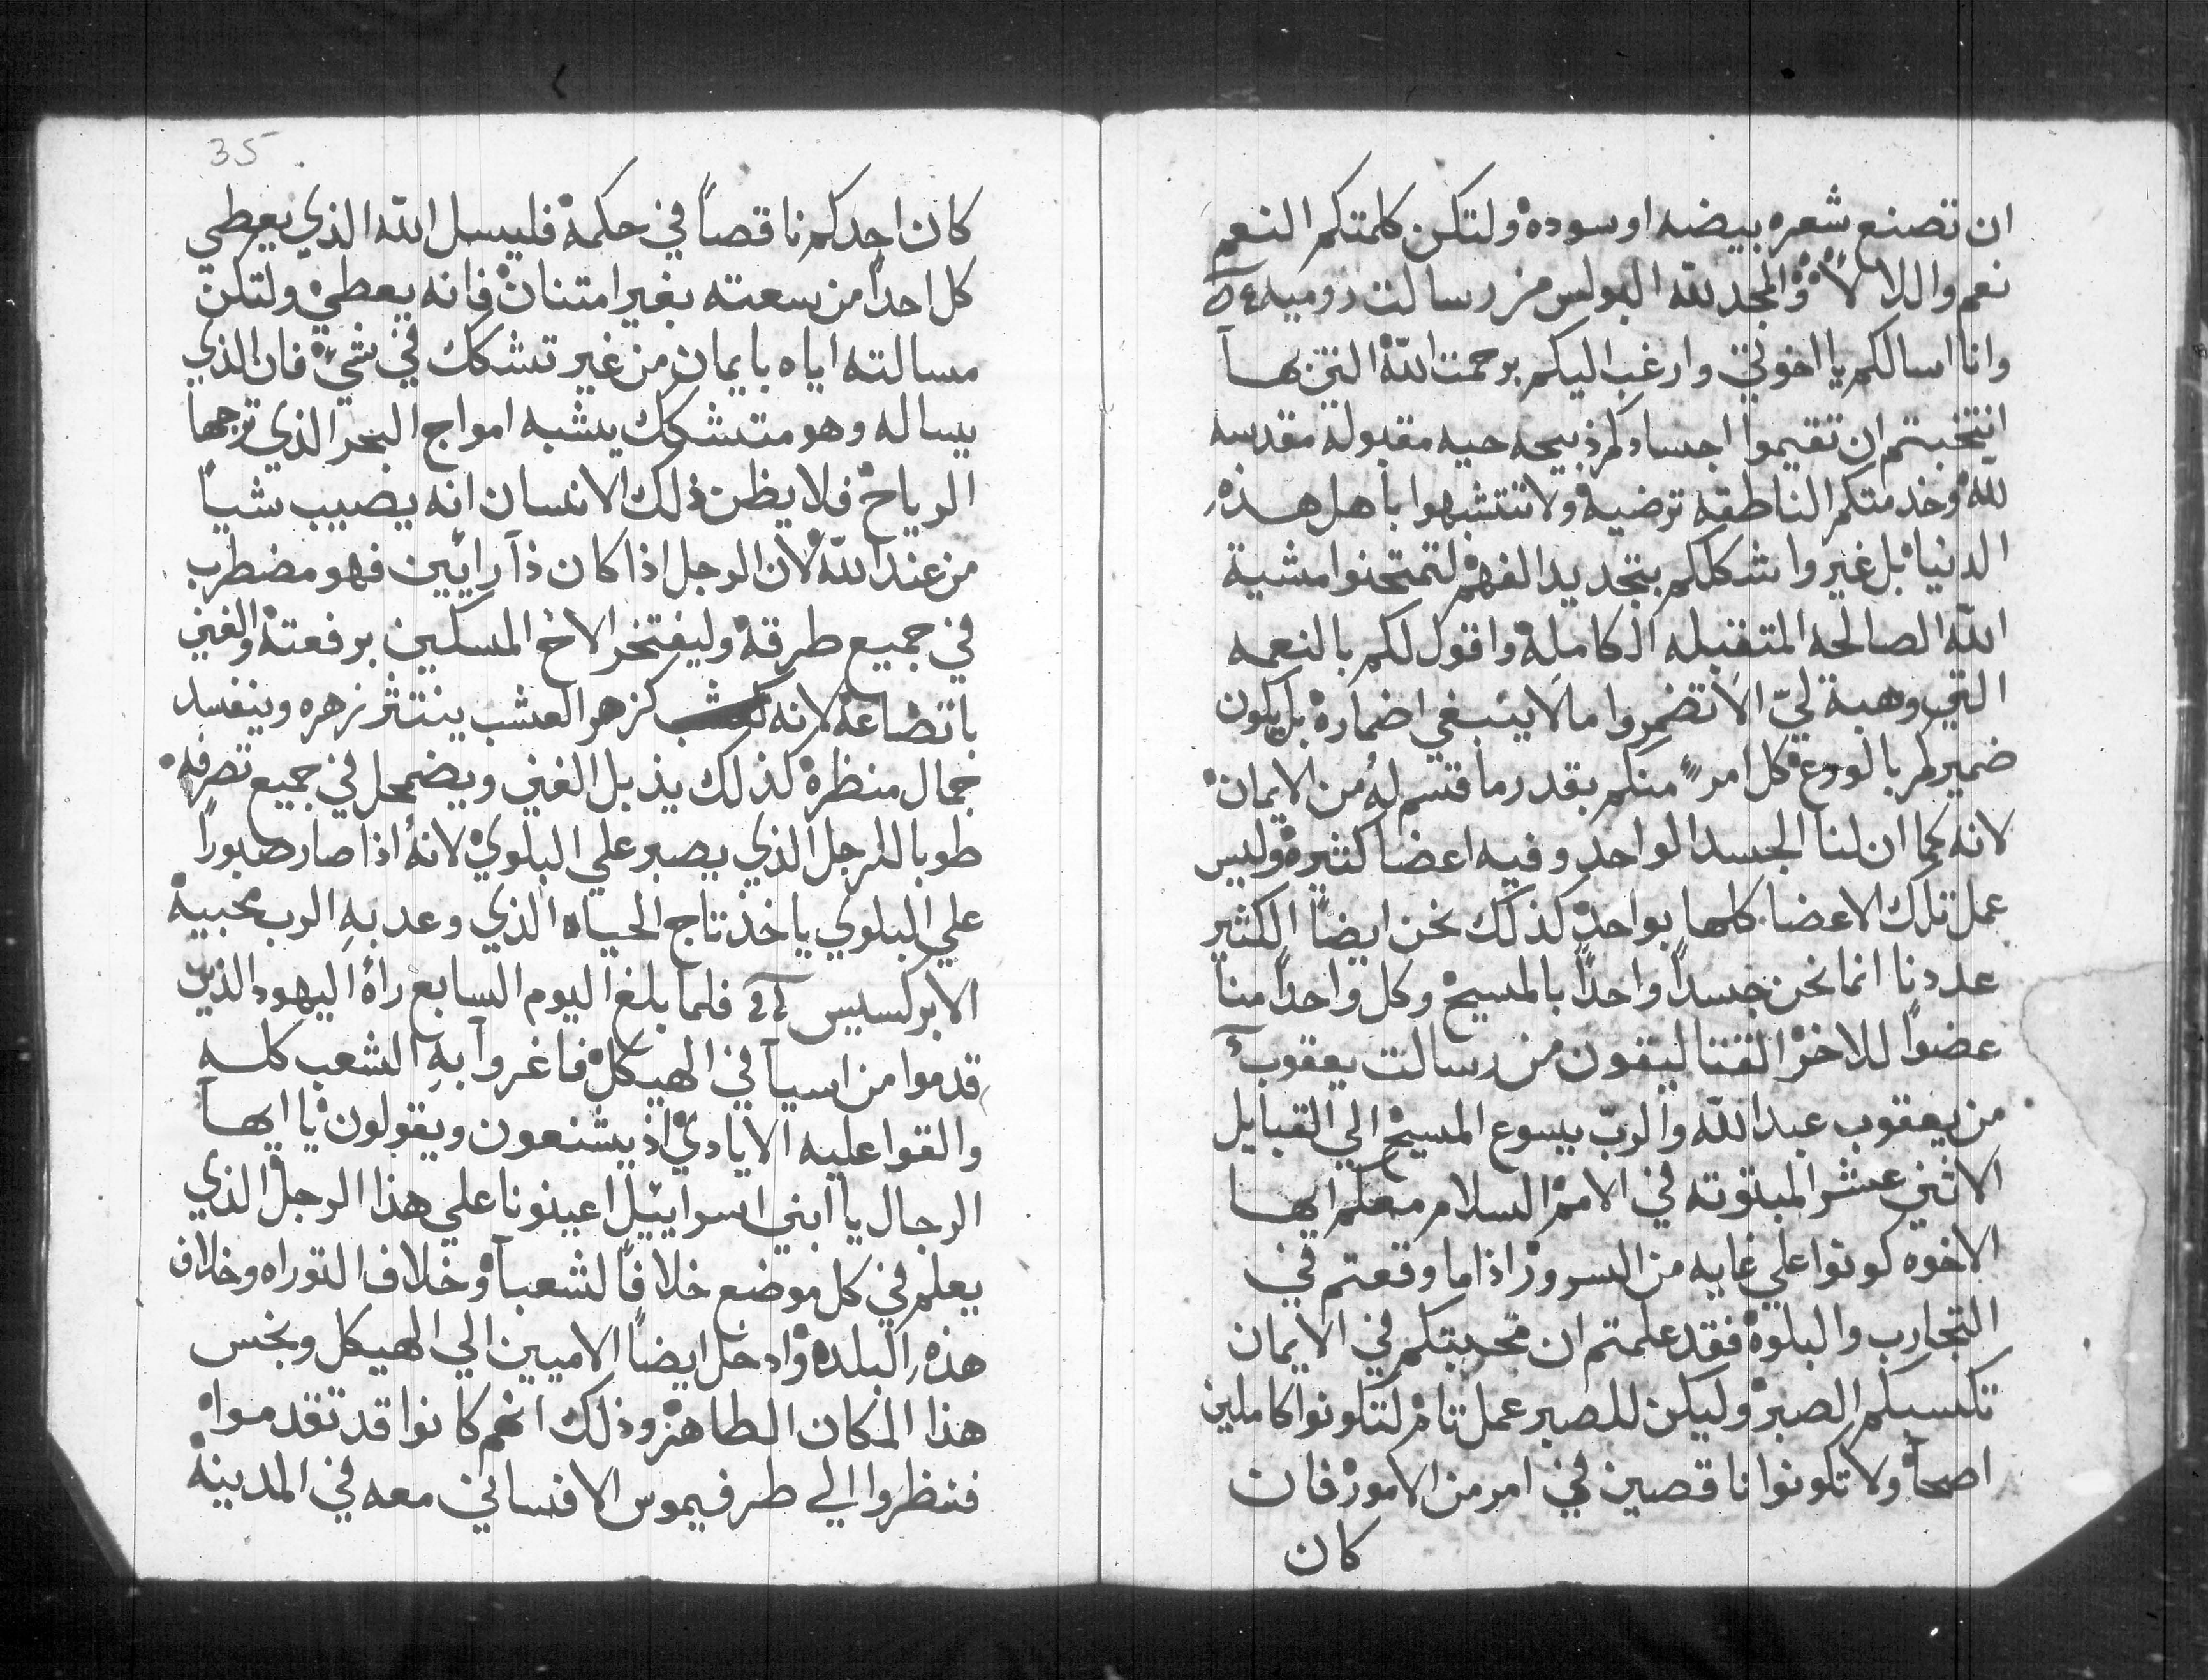 ان تصنع شعره بيضه او سوده ولتكن كلمتكم النعم
نعم واللا لا والمجد لله البولس من رسالت روميه
وانا اسالكم يا اخوتي وارغب اليكم برحمت الله التي بها
انتخبتم ان تقيموا اجسادكم ذبيحه حيه مقبوله مقدسه
لله وخدمتكم الناطقه ترضيه ولا تتشبهوا باهل هذه
الدنيا بل غيروا شكلكم بتجديد الفهم لتمتحنوا مشية
الله الصالحه المتقبله الكامله واقول لكم بالنعمه
التي وهبة لي الا تضمروا ما لا ينبغي اضماره بل يكون
ضميركم بالورع كل امرء منكم بقدر ما قسم له من الايمان
لانه كما ان لنا الجسد الواحد وفيه اعضا كثيره وليس
عمل تلك الاعضا كلها بواحد كذلك نحن ايضاً الكثير
عددنا انما نحن جسداً واحداً بالمسيح وكل واحداً منا
عضواً للاخر القتاليقون من رسالت يعقوب
من يعقوب عبد الله والرب يسوع المسيح الي القبايل
الاثني عشر المبثوته في الامم السلام معكم ايها
الاخوه كونوا علي غايه من السرور اذا ما وقعتم في
التجارب والبلوه فقد علمتم ان محنتكم في الايمان
تكسبكم الصبر وليكن للصبر عمل تام لتكونوا كاملين
اصحا ولا تكونوا ناقصين في امر من الامور فان
كان
35
كان احدكم ناقصاً في حكمه فليسل الله الذي يعطي
كل احداً من سعته بغير امتنان فانه يعطي ولتكن
مسالته اياه بايمان من غير تشكك في شي فان الذي
يساله وهو متشكك يشبه امواج البحر الذي ترجها
الرياح فلا يظن ذلك الانسان انه يصيب شياً
من عند الله لان الرجل اذا كان ذا رايين فهو مضطرب
في جميع طرقه وليفتخر الاخ المسكين برفعته والغني
باتضاعه لانه كزهر العشب ينتثر زهره وينفسد
جمال منظره كذلك يذبل الغني ويضمحل في جميع تصرفه
طوبا للرجل الذي يصبر علي البلوي لانه اذا صار صبوراً
علي البلوي ياخذ تاج الحياه الذي وعد به الرب محبيه
الابركسيس فلما بلغ اليوم السابع راه اليهود الذين
قدموا من اسيا في الهيكل فاغروا به الشعب كله
والقوا عليه الايادي اذ يشنعون ويقولون يا ايها
الرجال يا ابني اسراييل اعينونا علي هذا الرجل الذي
يعلم في كل موضع خلافاً لشعبا وخلاف التوراه وخلاف
هذه البلده وادخل ايضاً الاميين الي الهيكل ونجس
هذا المكان الطاهر وذلك انهم كانوا قد تقدموا
فنظروا الي طرفيموس الافساني معه في المدينه